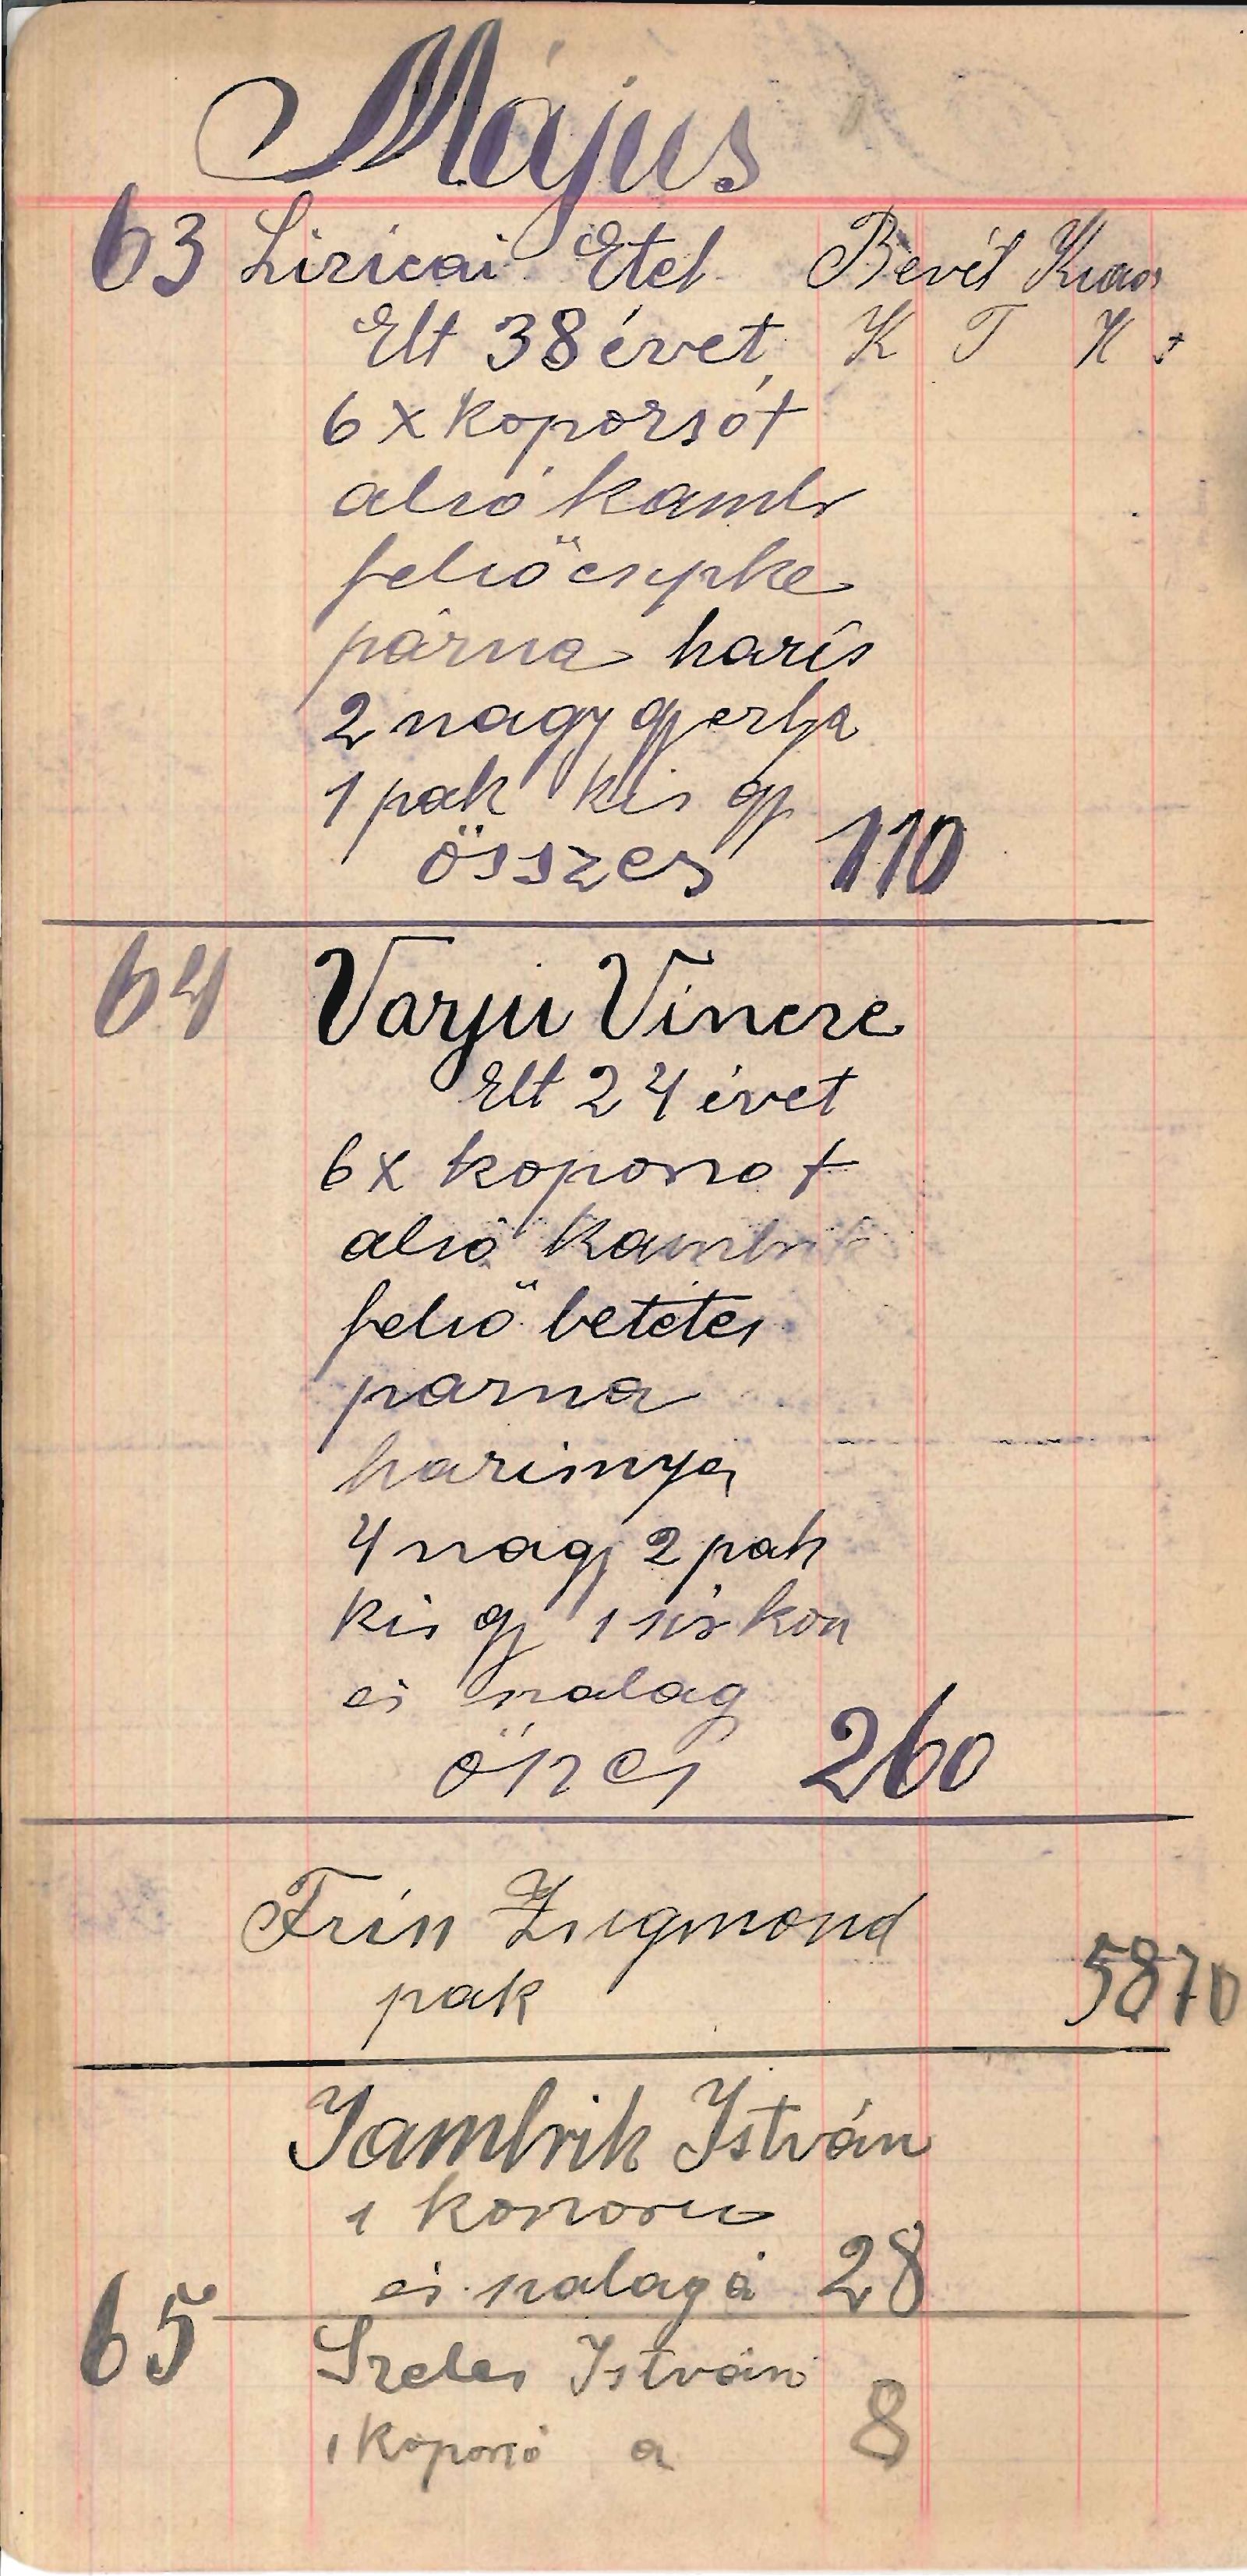 Május
63 Liricai Etel Bevét Kiad
Elt 38 évet K F K f
6 x koporsót
alsó kambr
felső csipke
párna haris
2 nagy gyertya
1 pak kis gy
összes 110
64 Varju Vincze
Elt 24 évet
6 x koporsot
alsó kambrik
felső betétes
parna
harisnya
4 nagy 2 pak
kis gy 1 sir kosz
és szalag
öszes 260
Fris Zsigmond
pak 5870
Jambrik István
1 koszoru
és szalag á 28
65 Szeles István
1 koporsó a 8